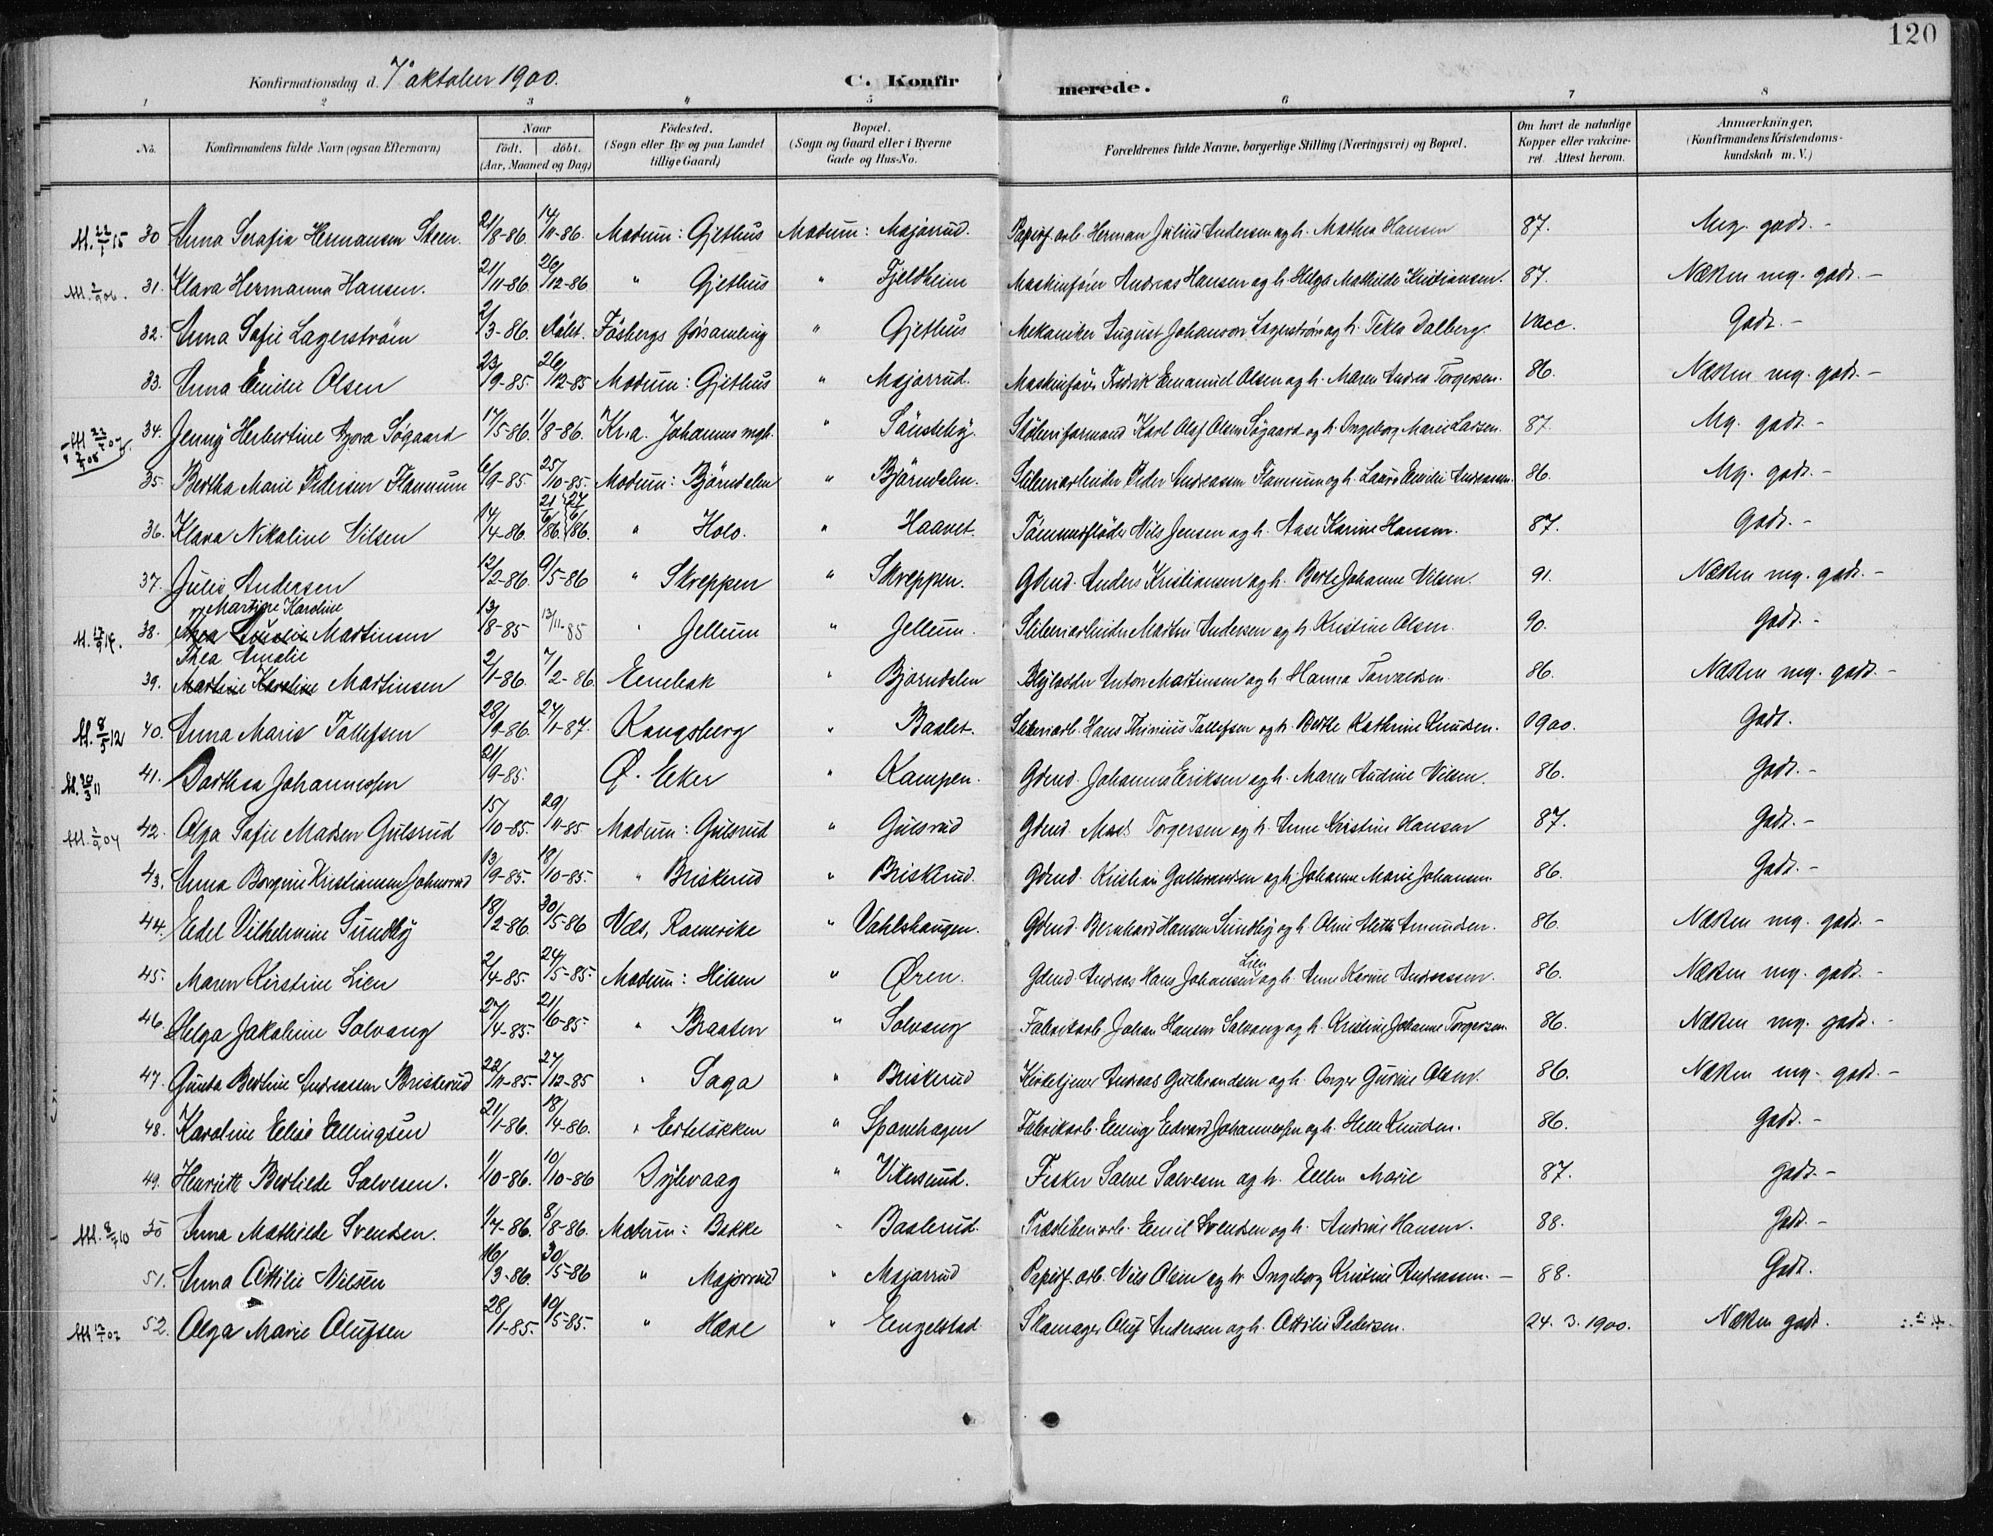 120
Konfirmationsdag d. 7 oktober 1900. C. Konfirmerede.
1 2 3 " 5 6 7 8
No. Konfirmandens fulde Navn (ogsaa Efternavn) Naar født. døbt. (Aar, Maaned og Dag) Fødested. (Sogn eller By og paa Landet tillige Gaard) Bopæl. (Sogn og Gaard eller i Byerne Gade og Hus-No. Forældrenes fulde Navne, borgerlige Stilling (Næringsvei) og Bopæl. Om havt de naturlige Kopper eller vakcineret. Attest herom. Anmærkninger. (Konfirmandens Kristendomskundskab m. V.)
30 Anna Serafia Hermansen Steen. 21/8-86. 14/11-86. Modum: Gjethus Modum: Majorrud. Papirf. arb. Herman Julius Andersen og h. Mathea Hansen 87. Mg. godt. -
31. Klara Hermanna Hansen. 21/11-86. 26/12-86 " Gjethus " Fjeldheim Maskinfører Andreas Hansen og h. Helga Mathilde Kristiansen. 87. Næsten mg. godt. -
32. Anna Sofie Lagerström 2/3-86. Fösbergs församling " Gjethus Mekaniker August Johanson Lagerström og h. Tekla Dalberg. vacc. Godt. -
33. Anna Emilie Olsen 23/9-85. 26/12-85 Modum: Gjethus " Majorrud. Maskinfører Fredrik Emanuel Olsen og h. Maren Andrea Torgersen. 86. Næsten mg. godt. -
34. Jenny Herbertine Bjora Søgaard 17/5-86. 1/8-86. Kr.a. Johannes mgh. " Sønsteby. Sliberiformand Karl Olaf Olsen Søgaard og h. Ingeborg Marie Larsen. 87. Mg. godt. -
35. Bertha Marie Pedersen Flannum 6/9-85. 25/10-85. Modum: Bjørndalen " Bjørndalen. Sliberiarbeider Peder Andreassen Flannum og h. Laura Emilie Andreassen. 86. Mg. godt. -
36. Klara Nikoline Nilsen 14/4-86. 21/6 86. 27/6 86. " Holo. " Haavet. Tømmerfløder Nils Jensen og h. Aase Karine Hansen. 87. Godt. -
37. Julie Andersen 12/2-86. 9/5-86 " Skreppen " Skreppen. Gdend. Anders Kristiansen og h. Berte Johanne Nilsen. 91. Næsten mg. godt. -
38. Martine Karoline Thea Amalie Martinsen 13/8-85 13/11-85 " Jellum " Jellum. Sliberiarbeider Martin Andersen og h. Kristine Olsen. 90. Godt. -
Thea Amalie
39. Martine Karoline Martinsen 2/1-86. 7/2-86. Enebak " Bjørndalen Anton Martinsen og h. Hanna Torvaldsen. 86. Næsten mg. godt. -
40. Anna Marie Tollefsen 28/9-86. 27/1-87. Kongsberg " Baalet. Sliberiarb. Hans Thinius Tollefsen og h. Berthe Kathrine Knudsen. 1900. Godt.
41. Dorthea Johannessen 21/9-85. Ø. Eker " Kampen. Gdend. Johannes Eriksen og h. Maren Andrine Nilsen. 86. Godt. -
42. Olga Sofie Madsen Gulsrud 15/10-85. 29/11-85 Modum: Gulsrud " Gulsrud Gdend. Mads Torgersen og h. Anne Kristine Hansen 87. Godt. -
43. Anna Borgine Kristiansen Johnsrud 13/9-85. 18/10-85. " Briskerud " Briskerud. Gdend. Kristian Gulbrandsen og h. Johanne Marie Johansen. 86. Godt. -
44. Edel Vilhelmine Sundby 18/2-86. 30/5-86 Næs, Romerike " Vahlshaugen. Gdend. Bernhard Hansen Sundby og h. Oline Aletta Amundsen. 86. Næsten mg. godt. -
45. Maren Kirstine Lien 2/4-85. 24/5-85. Modum: Hilsen " Øren. Gdend. Andreas Hans Johansen Lien og h. Anne Karine Andreassen. 86. Næsten mg. godt. -
46. Helga Jakobine Solvang 27/4-85. 21/6-85. " Braaten " Solvang Fabrikarb. Johan Hansen Solvang og h. Kristine Johanne Torgersen. 86. Næsten mg. godt. -
47. Gunda Bertine Andreassen Briskerud 22/11-85. 27/12-85 " Saga " Briskerud Kirketjener Andreas Gulbrandsen og h. Inger Gurine Olsen. 86. Næsten mg. godt. -
48. Karoline Elise Ellingsen 21/1-86. 18/4-86. " Erteløkken " Sponehagen Fabrikarb. Elling Edvard Johannessen og h. Helle Knudsen. 86. Godt. -
49. Henriette Bertilde Salvesen. 1/10-86. 10/10-86 Dybvaag " Vikersund. Fisker Salve Salvesen og h. Ellen Marie 87. godt. -
50 Anna Mathilde Svendsen. 1/7-86. 8/8-86. Modum: Bakke " Baalerud. Træsliberiarb. Emil Svendsen og h. Andrine Hansen. 88. Godt. -
51. Anna Ottilie Nilsen 16/3-86. 30/5-86 " Majorrud " Majorrud Papirf. arb. Nils Olsen og h. Ingeborg Kristine Andreassen. - 88. Godt.
52. Olga Marie Olufsen 28/1-85. 10/5-85. " Hære " Engelstad. Skomager Oluf Andersen og h. Ottilie Pedersen. 24. 3. 1900. Næsten godt.